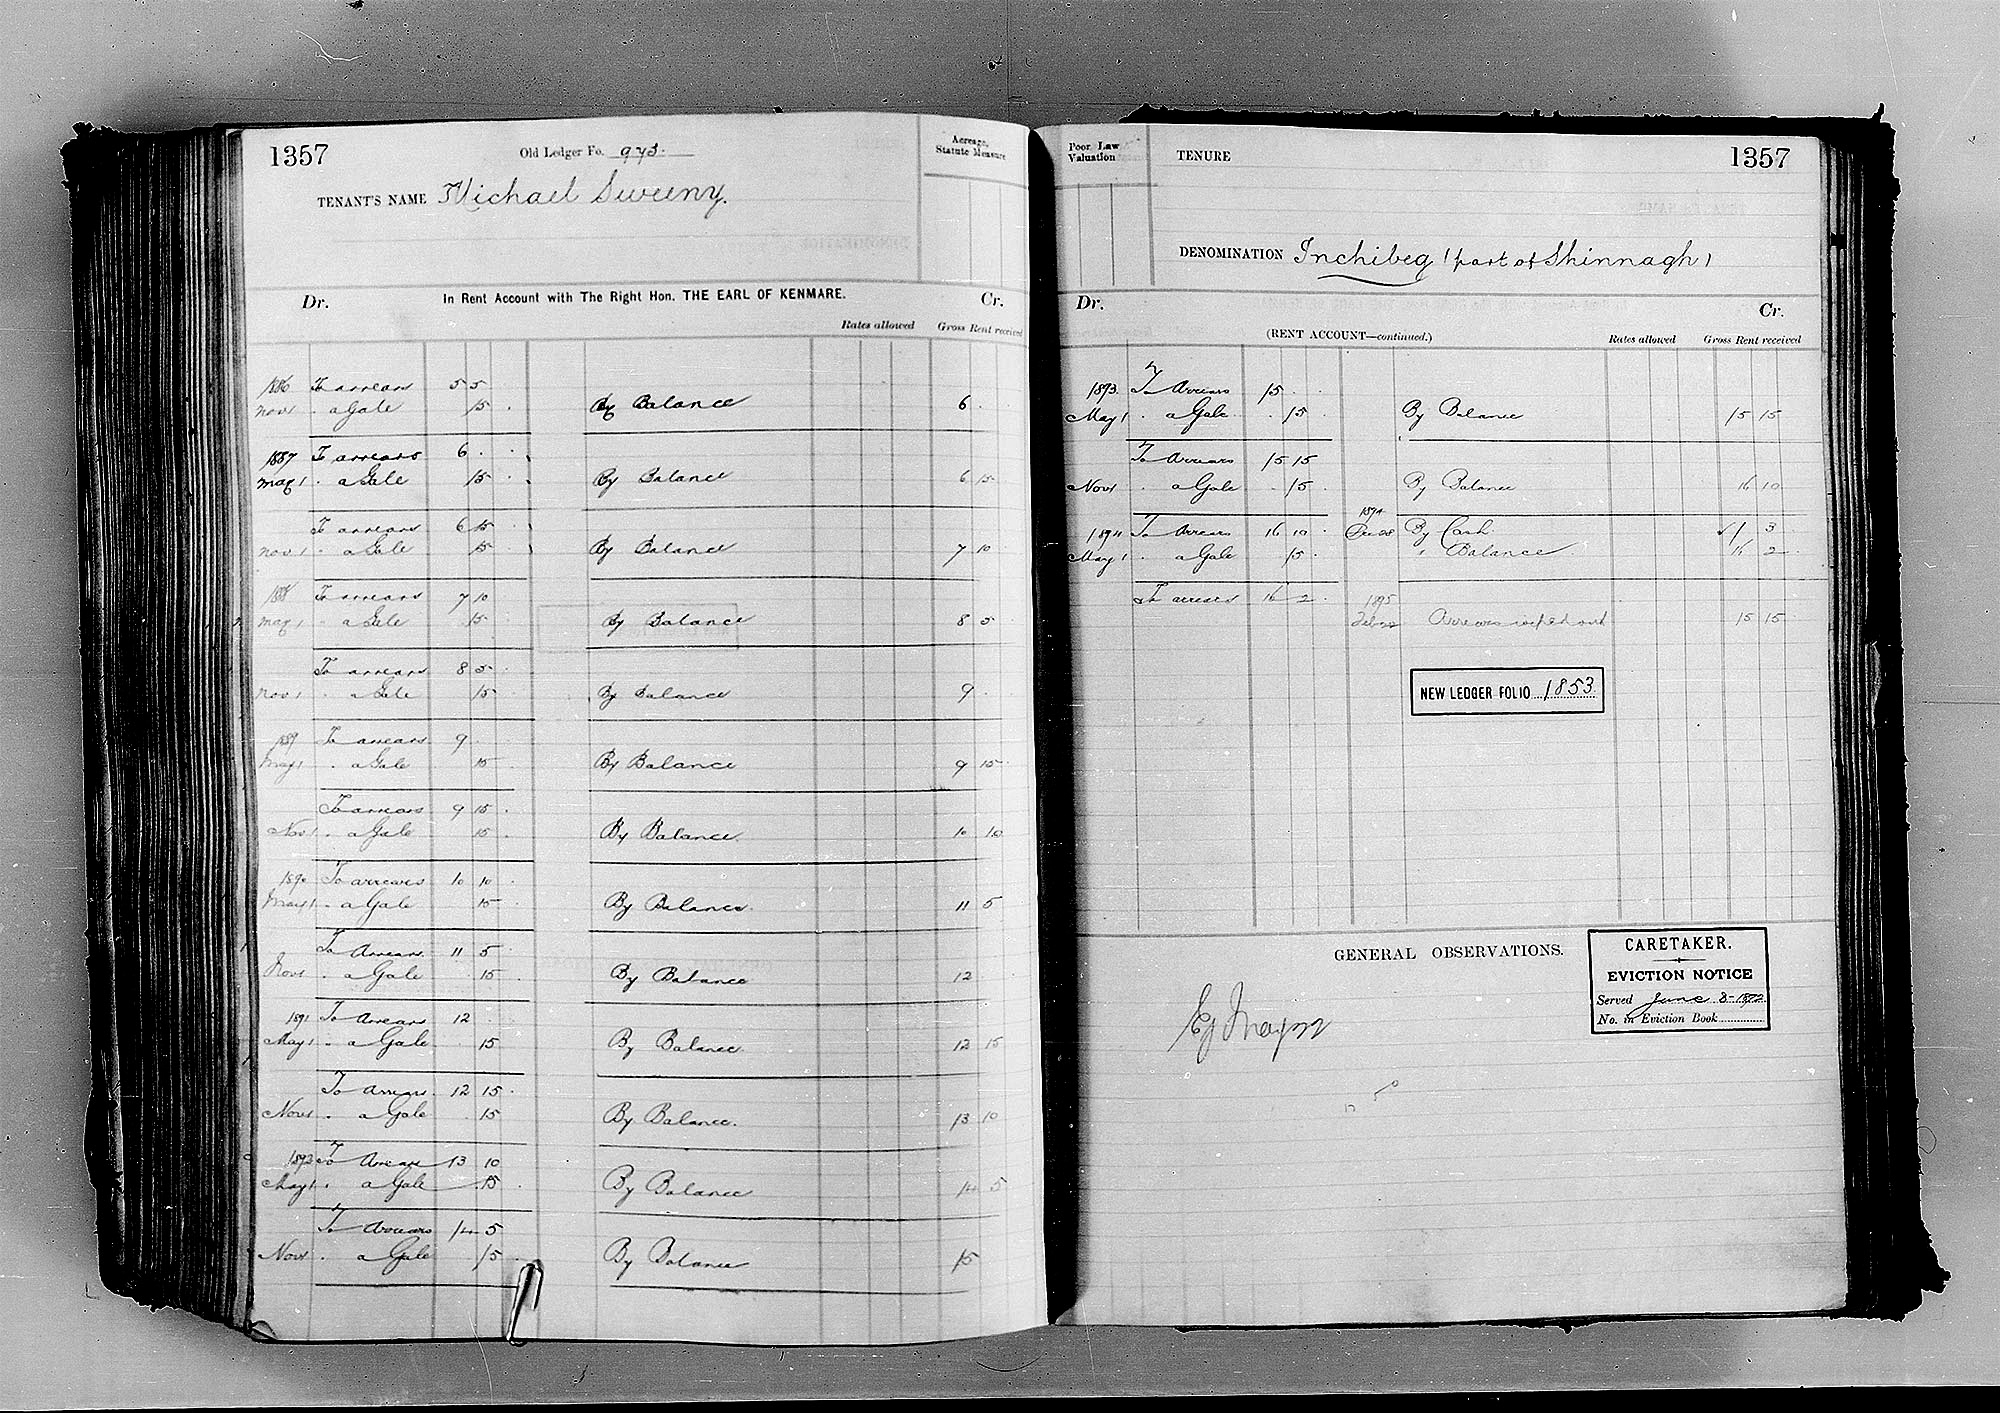 1357
Old Ledger Fo. 973.
Acreage, Statute Measure
TENANT'S NAME Michael Sweeny.
Dr. In Rent Account with The Right Hon. THE EARL OF KENMARE. Cr.
Rates allowed Gross Rent received
1886 To arrears 5 5
Nov 1 . a Gale 15 . By Balance 6 .
1887 To arrears 6 . .
May 1 . a Gale 15 . By Balance 6 15
To arrears 6 15 .
Nov 1 . a Gale 15 . By Balance 7 10
1888 To arrears 7 10
May 1 . a Gale 15 . By Balance 8 5
To arrears 8 5 .
Nov 1 . a Gale 15 . By Balance 9 .
1889 To arrears 9 .
May 1 . a Gale 15 By Balance 9 15
To arrears 9 15 .
Nov 1 . a Gale 15 . By Balance. 10 10
1890 To arrears 10 10 .
May 1 . a Gale 15 . By Balance. 11 5
To Arrears 11 5 .
Nov 1 . a Gale 15 . By Balance 12
1891 To Arrears 12
May 1 . a Gale 15 By Balance. 12 15
To Arrears. 12 15 .
Nov 1 . a Gale 15 By Balance. 13 10
To Arrears 13 10
May 1 . a Gale 15 By Balance 14 5
To Arrears 14 5
Nov 1 . a Gale 15 . By Balance 15
Poor Law Valuation
TENURE
1357
DENOMINATION Inchibeg (part of Shinnagh)
Dr. Cr.
(RENT ACCOUNT—continued.) Rates allowed Gross Rent received
1893 To Arrears 15 . .
May 1 . a Gale . 15 . By Balance 15 15
To Arrears 15 15
Nov 1 . a Gale . 15 . By Balance 16 10
1894
1894 To Arrears 16 10 . By Cash 1 3
May 1 . a Gale 15 . " Balance 16 2
To arrears 16 2 . 1895
Feb 22 Arrears wiped out 15 15
NEW LEDGER FOLIO 1853
GENERAL OBSERVATIONS.
CARETAKER.
EVICTION NOTICE
Served June 3-1892
No. in Eviction Book